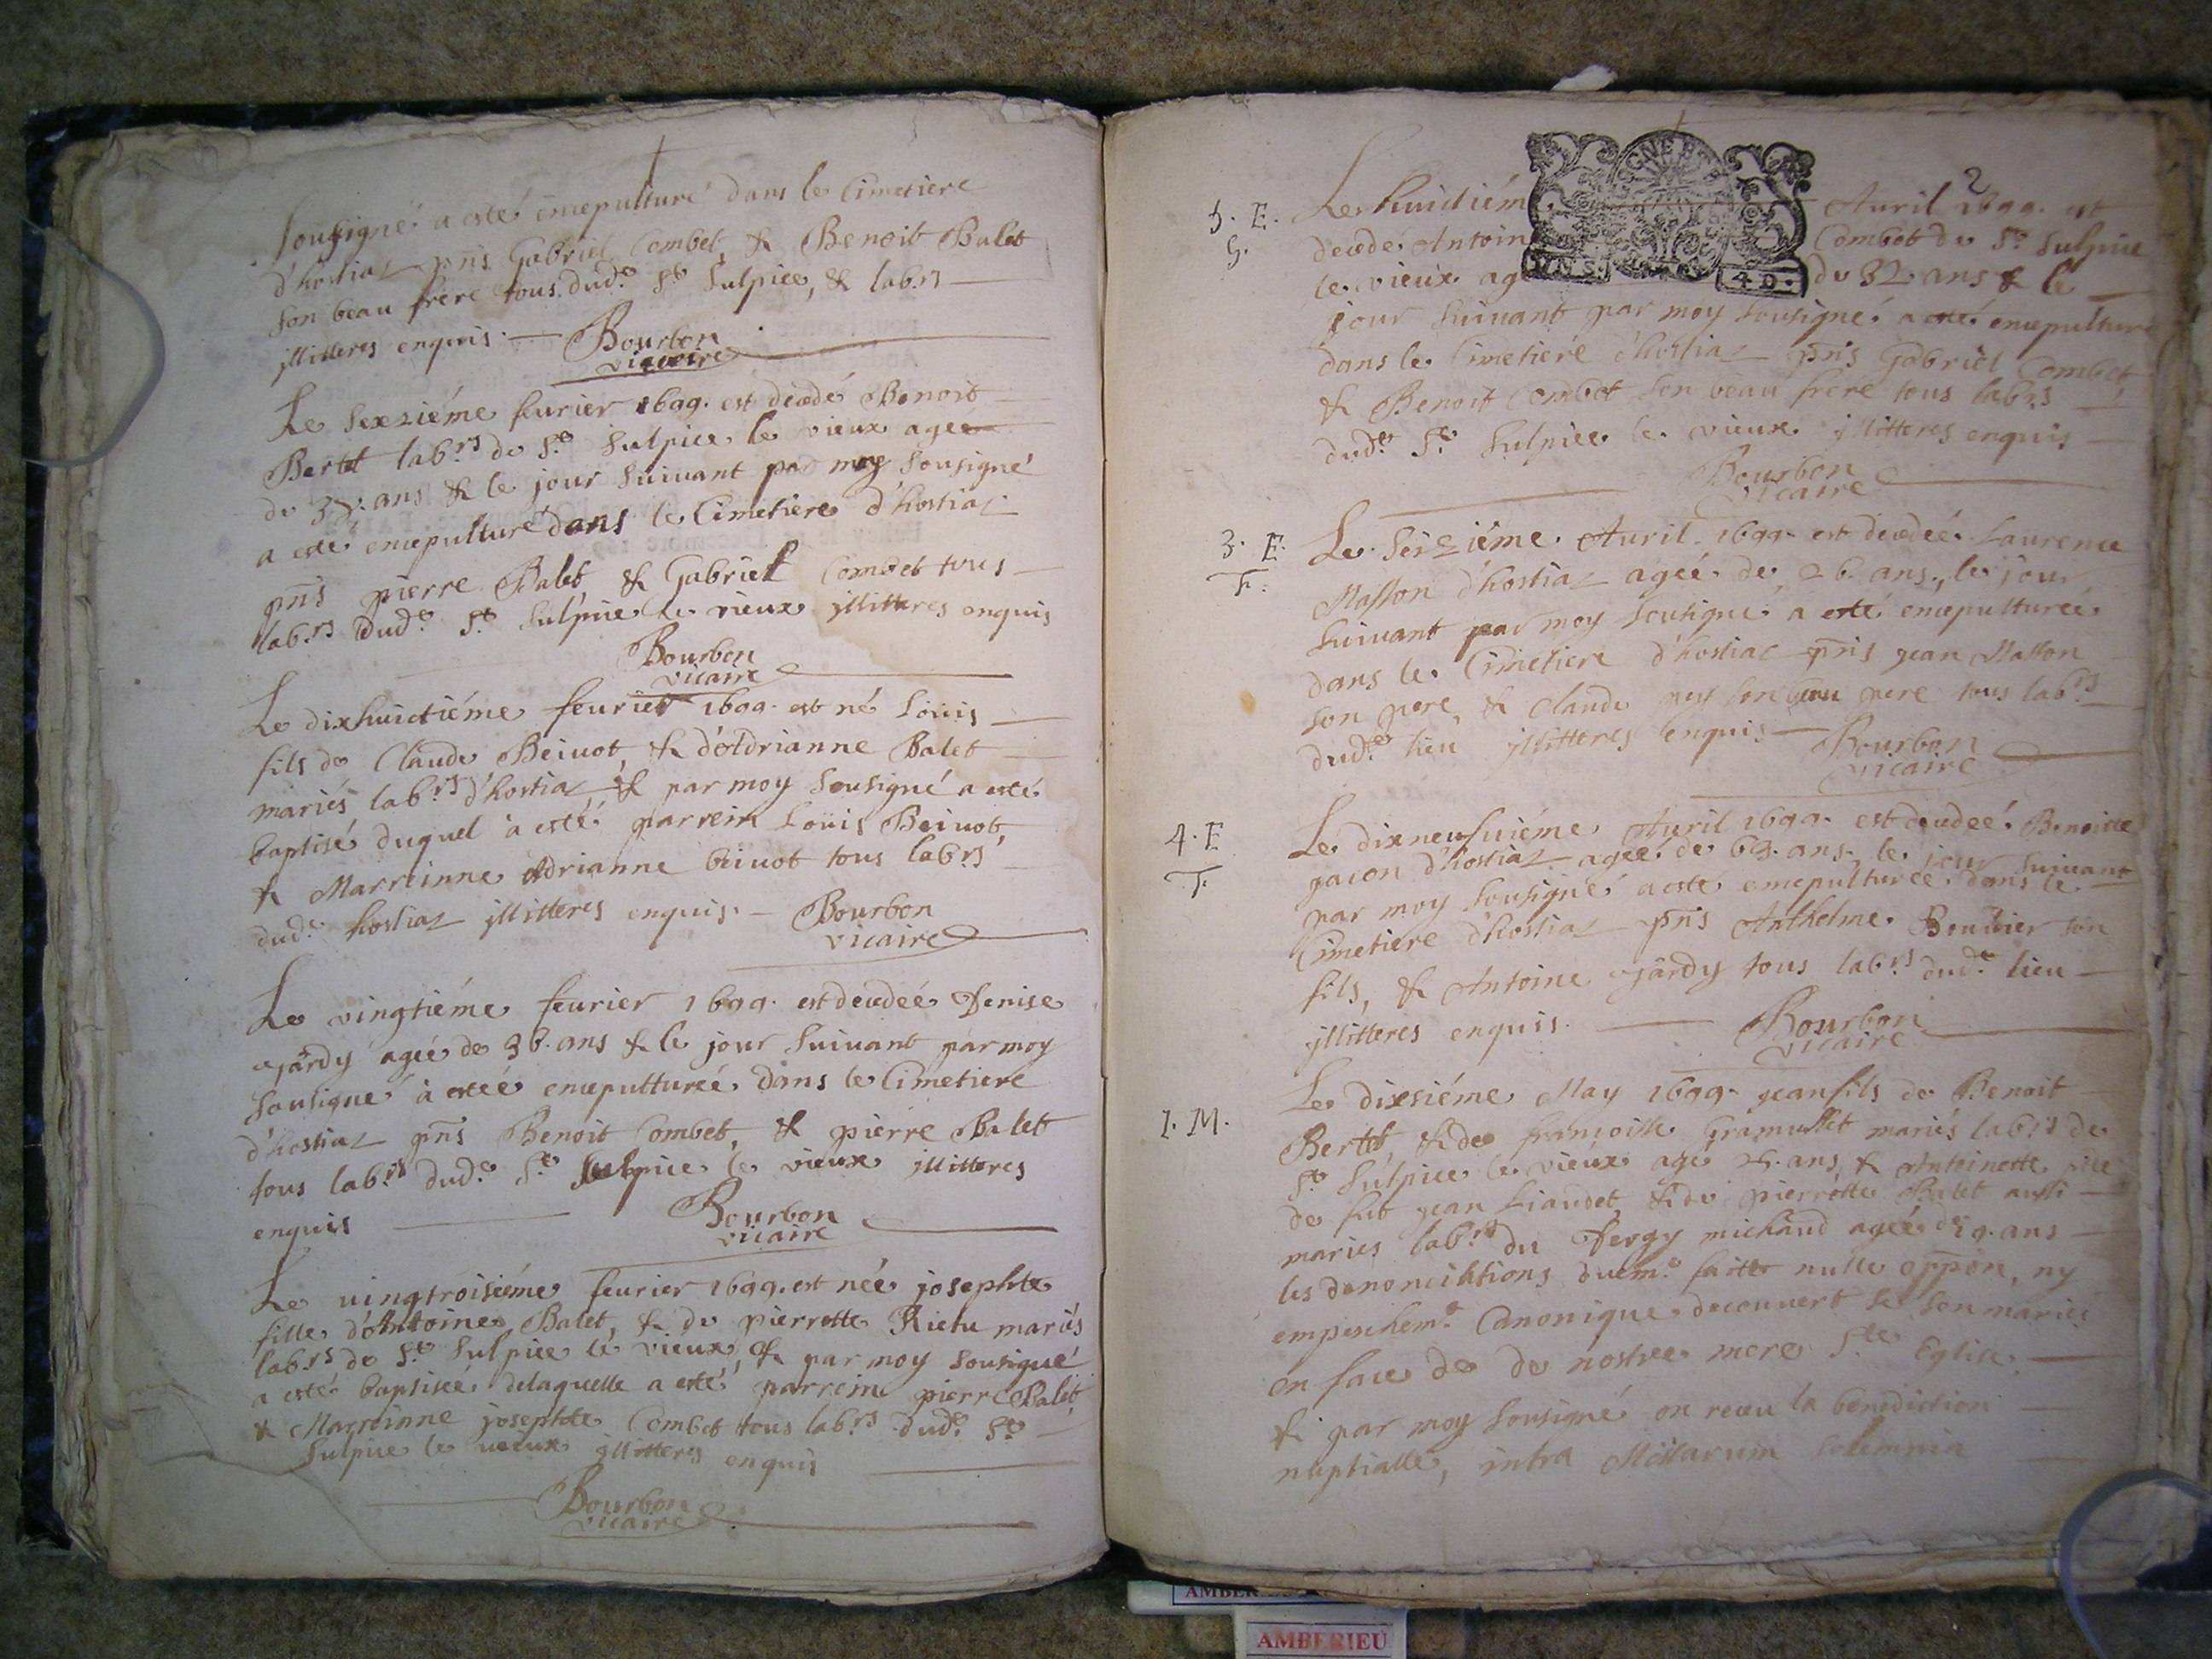 sousigné a esté encepulturé dans le Cimetiere
d'hostiaz pñs Gabriel Combet, & Benoit Balet
son beau frere tous dud.e S.t Sulpice, & lab.rs
jllitteres enquis. Bourbon
vicaire
Le sexziéme feurier 1699. est decedé Benoit
Bertet lab.rs de S.t Sulpice le vieux agée
de ans & le jour suiuant par moy sousigné
a esté encepulturé dans le Cimetiere d'hostiaz
pñs pierre Balet, & Gabriel Combet tous
lab.rs dud.e S.t Sulpice le vieux jllitteres enquis
Bourbon
vicaire
Le dixhuictiéme feurier 1699. est né Loüis
fils de Claude Beiuot, & d'Adrianne Balet
mariés lab.rs d'hostiaz & par moy sousigné a esté
baptisé duquel a esté parrein Loüis Beiuot,
& Marreinne Adrianne beiuot tous lab.rs
dud.e hostiaz jllitteres enquis. Bourbon
vicaire
Le vingtiéme feurier 1699. est decedeé Denise
Jârdy ageé de 36. ans & le jour suiuant par moy
sousigné à esteé encepultureé dans le Cimetiere
d'hostiaz pñs Benoit Combet, & pierre Balet
tous lab.rs dud.e S.t Sulpice le vieux jllitteres
enquis Bourbon
vicaire
Le uingtroisiéme feurier 1699. est née josephte
fille d'Antoine Balet, & de pierrette Rietu mariés
lab.rs de S.t Sulpice le vieux, & par moy sousigné
a esté baptiseé delaquelle a esté parrein pierre Balet,
& Marreinne josephte Combet tous lab.rs dud.e S.t
Sulpice le uieux jllitteres enquis
Bourbon
vicaire
2
3. E. Le huictiém Auril 1699. est
G. decedé Antoin Combet de S.t Sulpice
le vieux ag de 32. ans & le
4 D.
jour suiuant par moy sousigné a esté encepulturé
dans le Cimetiere d'hostiaz pñs Gabriel Combet,
& Benoit Combet son beau frere tous lab.rs
dud.e S.t Sulpice le vieux jllitteres enquis
Bourbon
vicaire
3. E. Le seiziéme Auril 1699. est decedeé Laurence
F. Masson d'hostiaz ageé de 26. ans, le jour
suiuant par moy sousigné a esté encepultureé
dans le Cimetiere d'hostiaz pñs jean Masson
son pere, & Claude son beau pere tous lab.rs
dud.e lieu jllitteres enquis Bourbon
vicaire
4. E Le dixneufuiéme Auril 1699. est decedeé Benoitte
F. gacon d'hostiaz ageé de 69. ans, le jour suiuant
par moy sousigné a esté encepultureé dans le
Cimetiere d'hostiaz pñs Anthelme Bouuier son
fils, & Antoine Jârdy tous lab.rs dud.e lieu
jllitteres enquis. Bourbon
vicaire
Le dixsiéme May 1699. jean fils de Benoit
1. M. Bertet, & de françoise Gramusset mariés lab.rs de
S.t Sulpice le vieux agé ans, & Antoinette fille
de fut jean Liaudet, & de pierrette Balet aussi
mariés lab.rs du Vergy michaud ageé de 19. ans
les denonciations duem.t faitte nulle oppôn, ny
empeschem.t Canonique decouuert se son mariés
en face de de nostre mere S.te Eglise,
& par moy sousigné on receu la benediction
nuptialle, intra Missarum solemnia
AMBERIEU